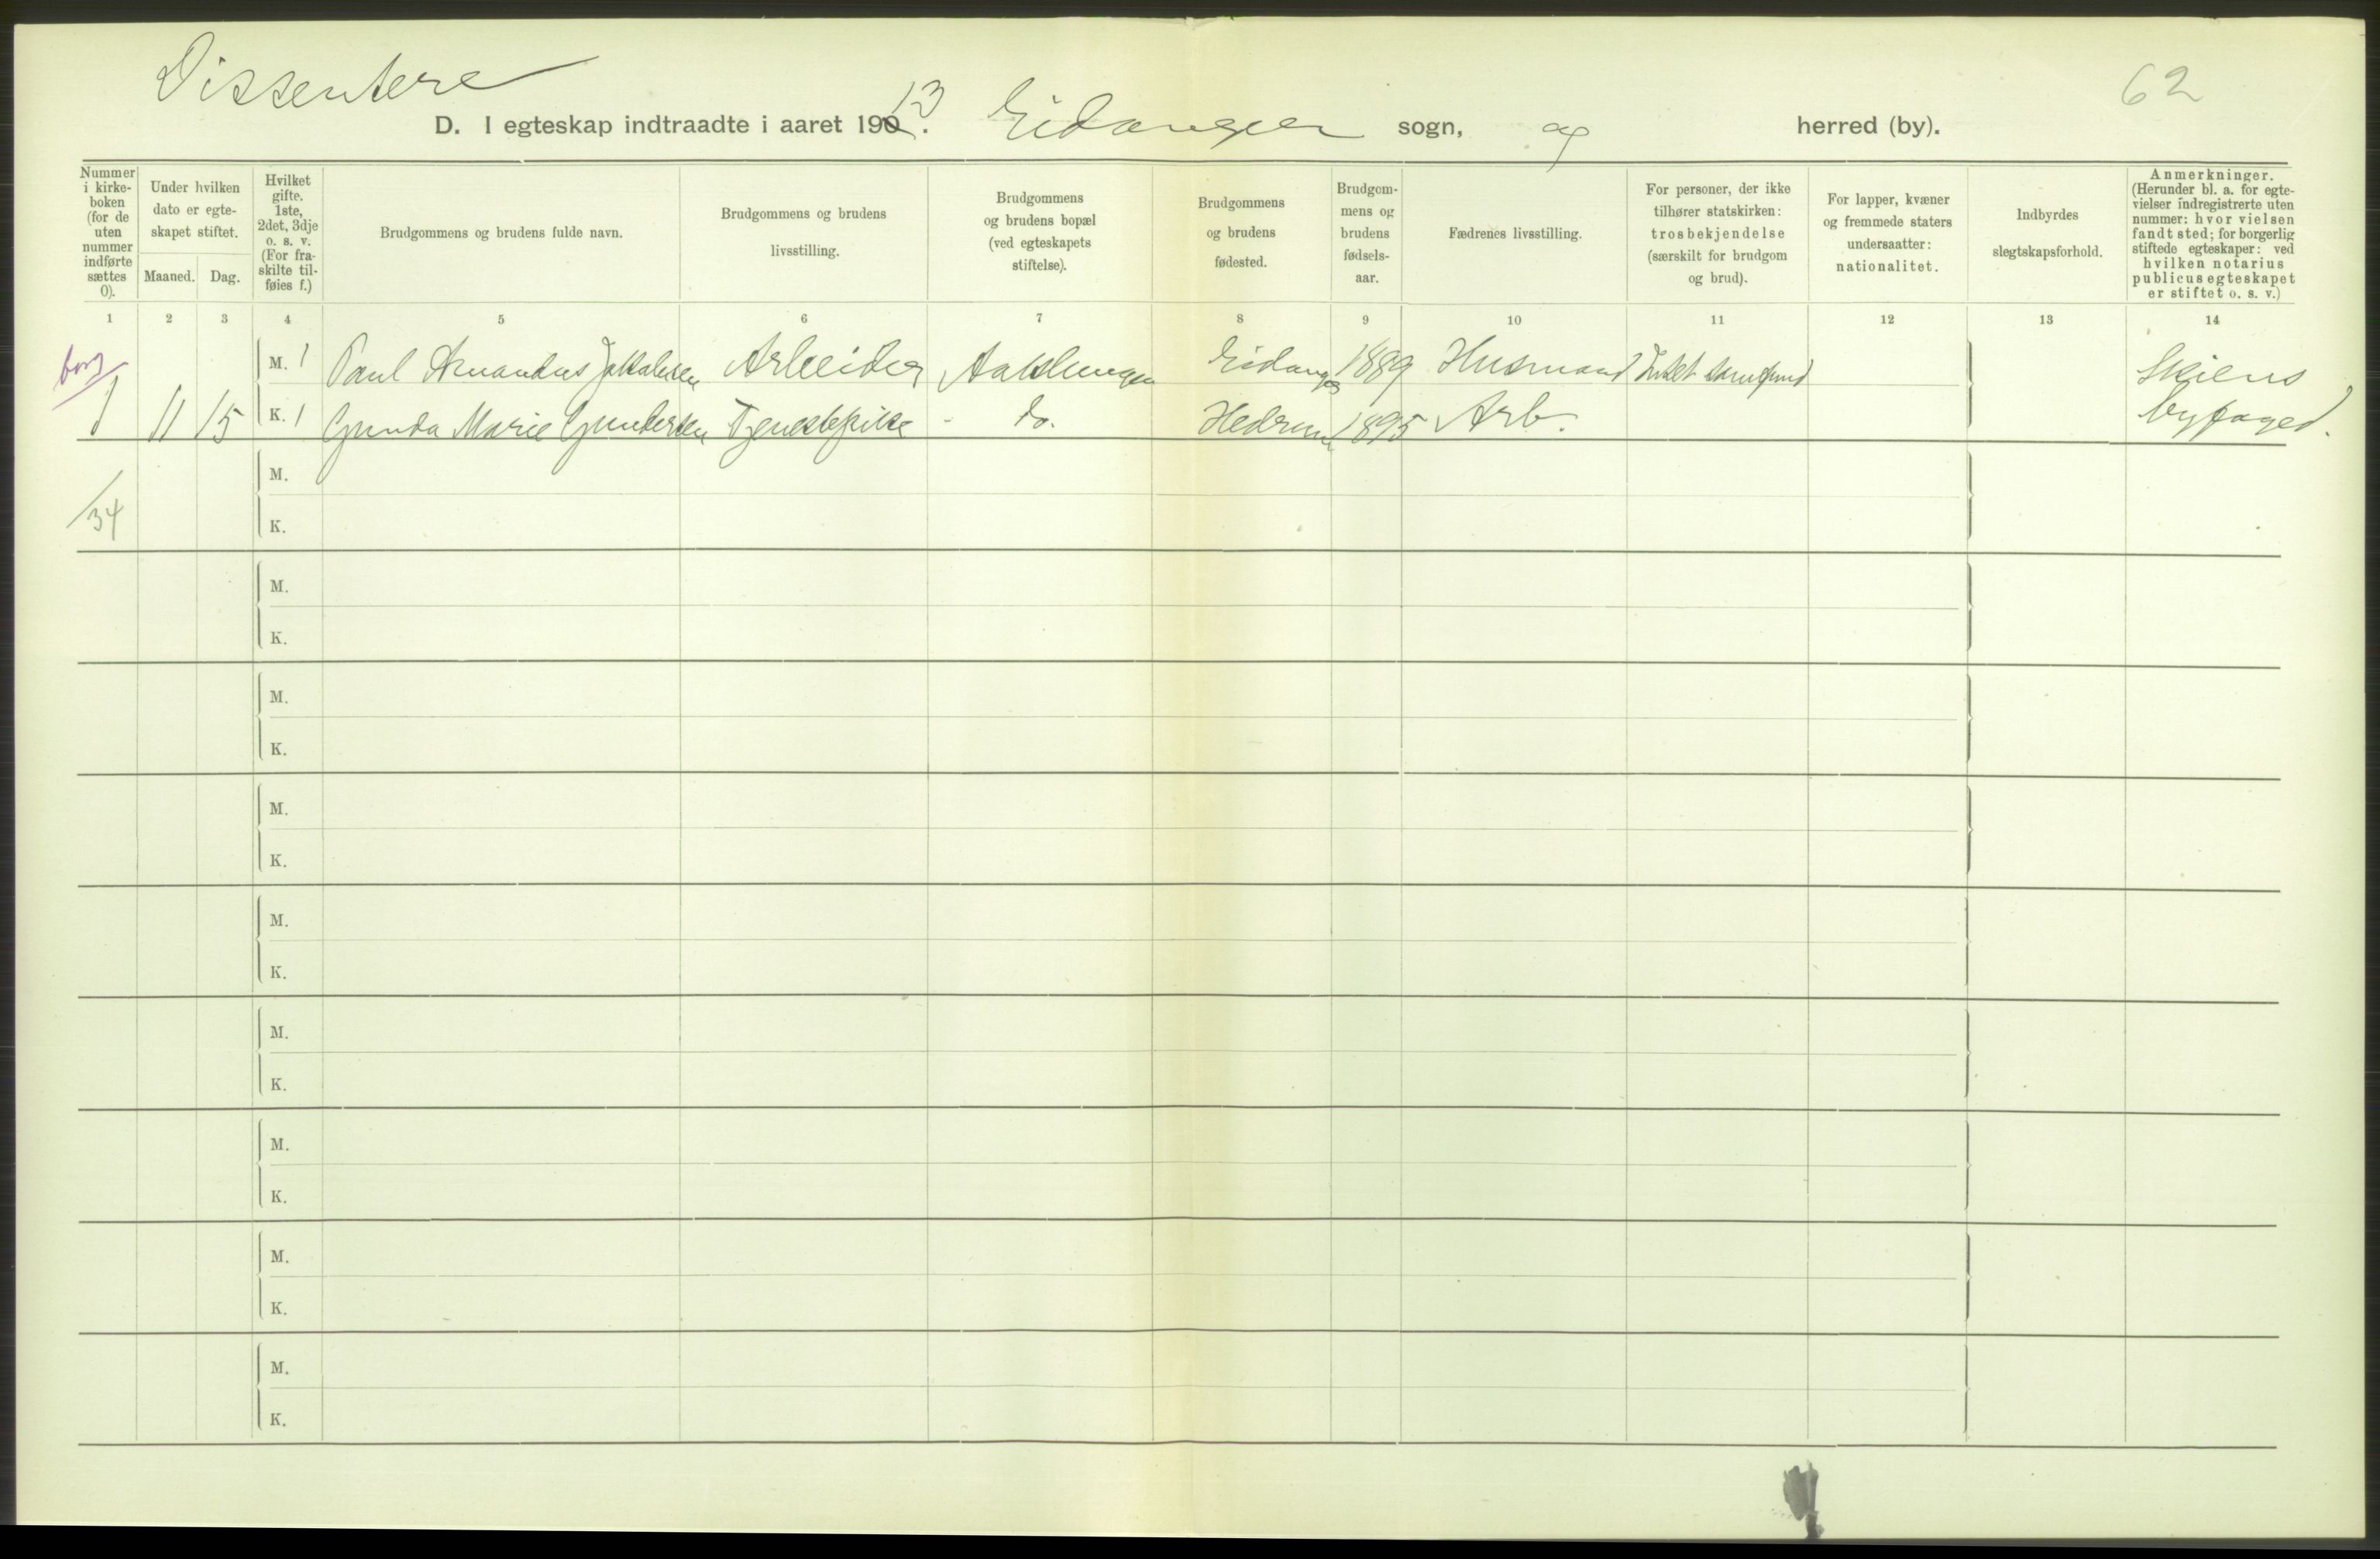 Dissentere
62
D. I egteskap indtraadte i aaret 1913. Eidanger sogn, og herred (by).
Nummer i kirke-boken (for de uten nummer indførte sættes 0).
Under hvilken dato er egte-skapet stiftet.
Maaned. Dag.
Hvilket gifte. 1ste, 2det, 3dje o. s. v. (For fra-skilte til-føies f.)
Brudgommens og brudens fulde navn.
Brudgommens og brudens livsstilling.
Brudgommens og brudens bopæl (ved egteskapets stiftelse).
Brudgommens og brudens fødested.
Brudgom-mens og brudens fødsels-aar.
Fædrenes livsstilling.
For personer, der ikke tilhører statskirken: trosbekjendelse (særskilt for brudgom og brud).
For lapper, kvæner og fremmede staters undersaatter: nationalitet.
Indbyrdes slegtskapsforhold.
Anmerkninger. (Herunder bl. a. for egte-vielser indregistrerte uten nummer: hvor vielsen fandt sted; for borgerlig stiftede egteskaper: ved hvilken notarius publicus egteskapet er stiftet o. s. v.)
1 2 3 4 5 6 7 8 9 10 11 12 13 14
borg
M. 1 Paul Amandus Arbeider Eidanger 1889 Husmand Intet samfund Skiens
1 11 15 K. 1 Gunda Marie Gundersen Tjenestepike - do. Hedrum 1895 Arb. byfoged.
M.
34
K.
M.
K.
M.
K.
M.
K.
M.
K.
M.
K.
M.
K.
M.
K.
M.
K.